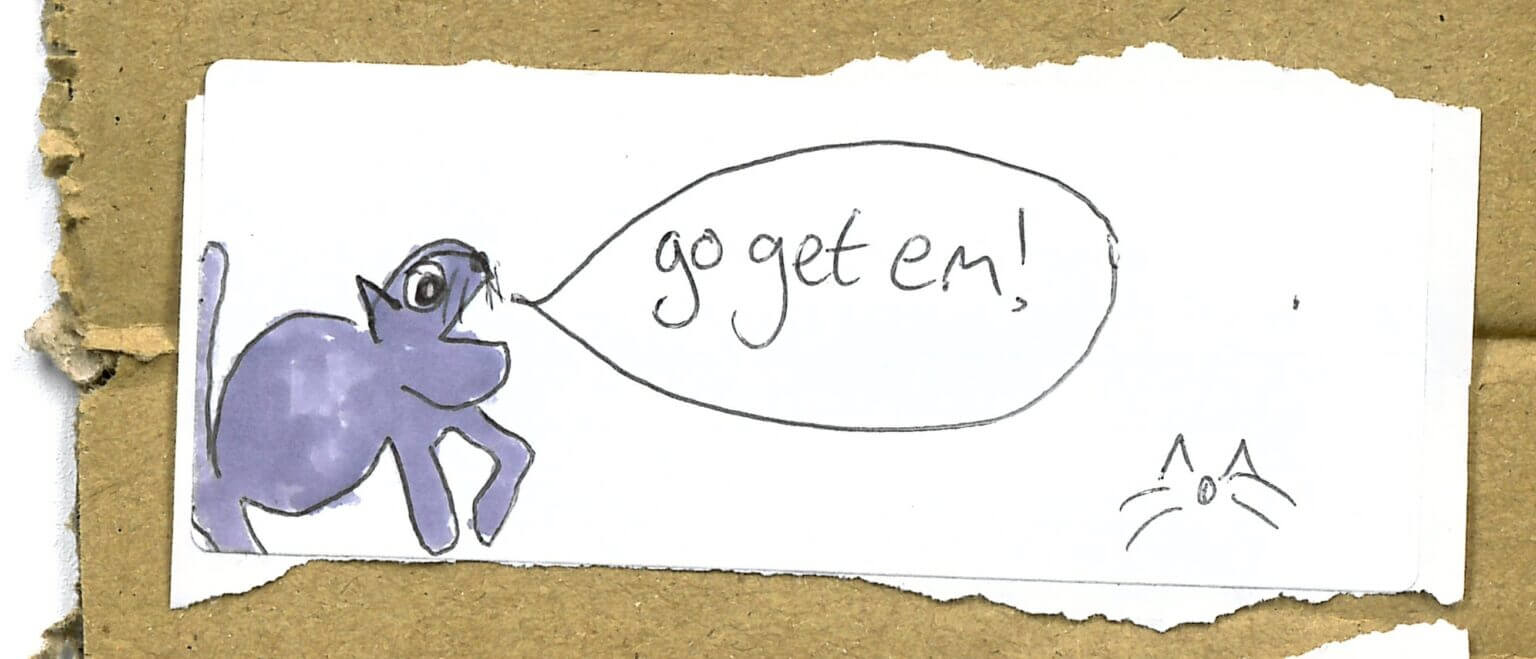 go get em!